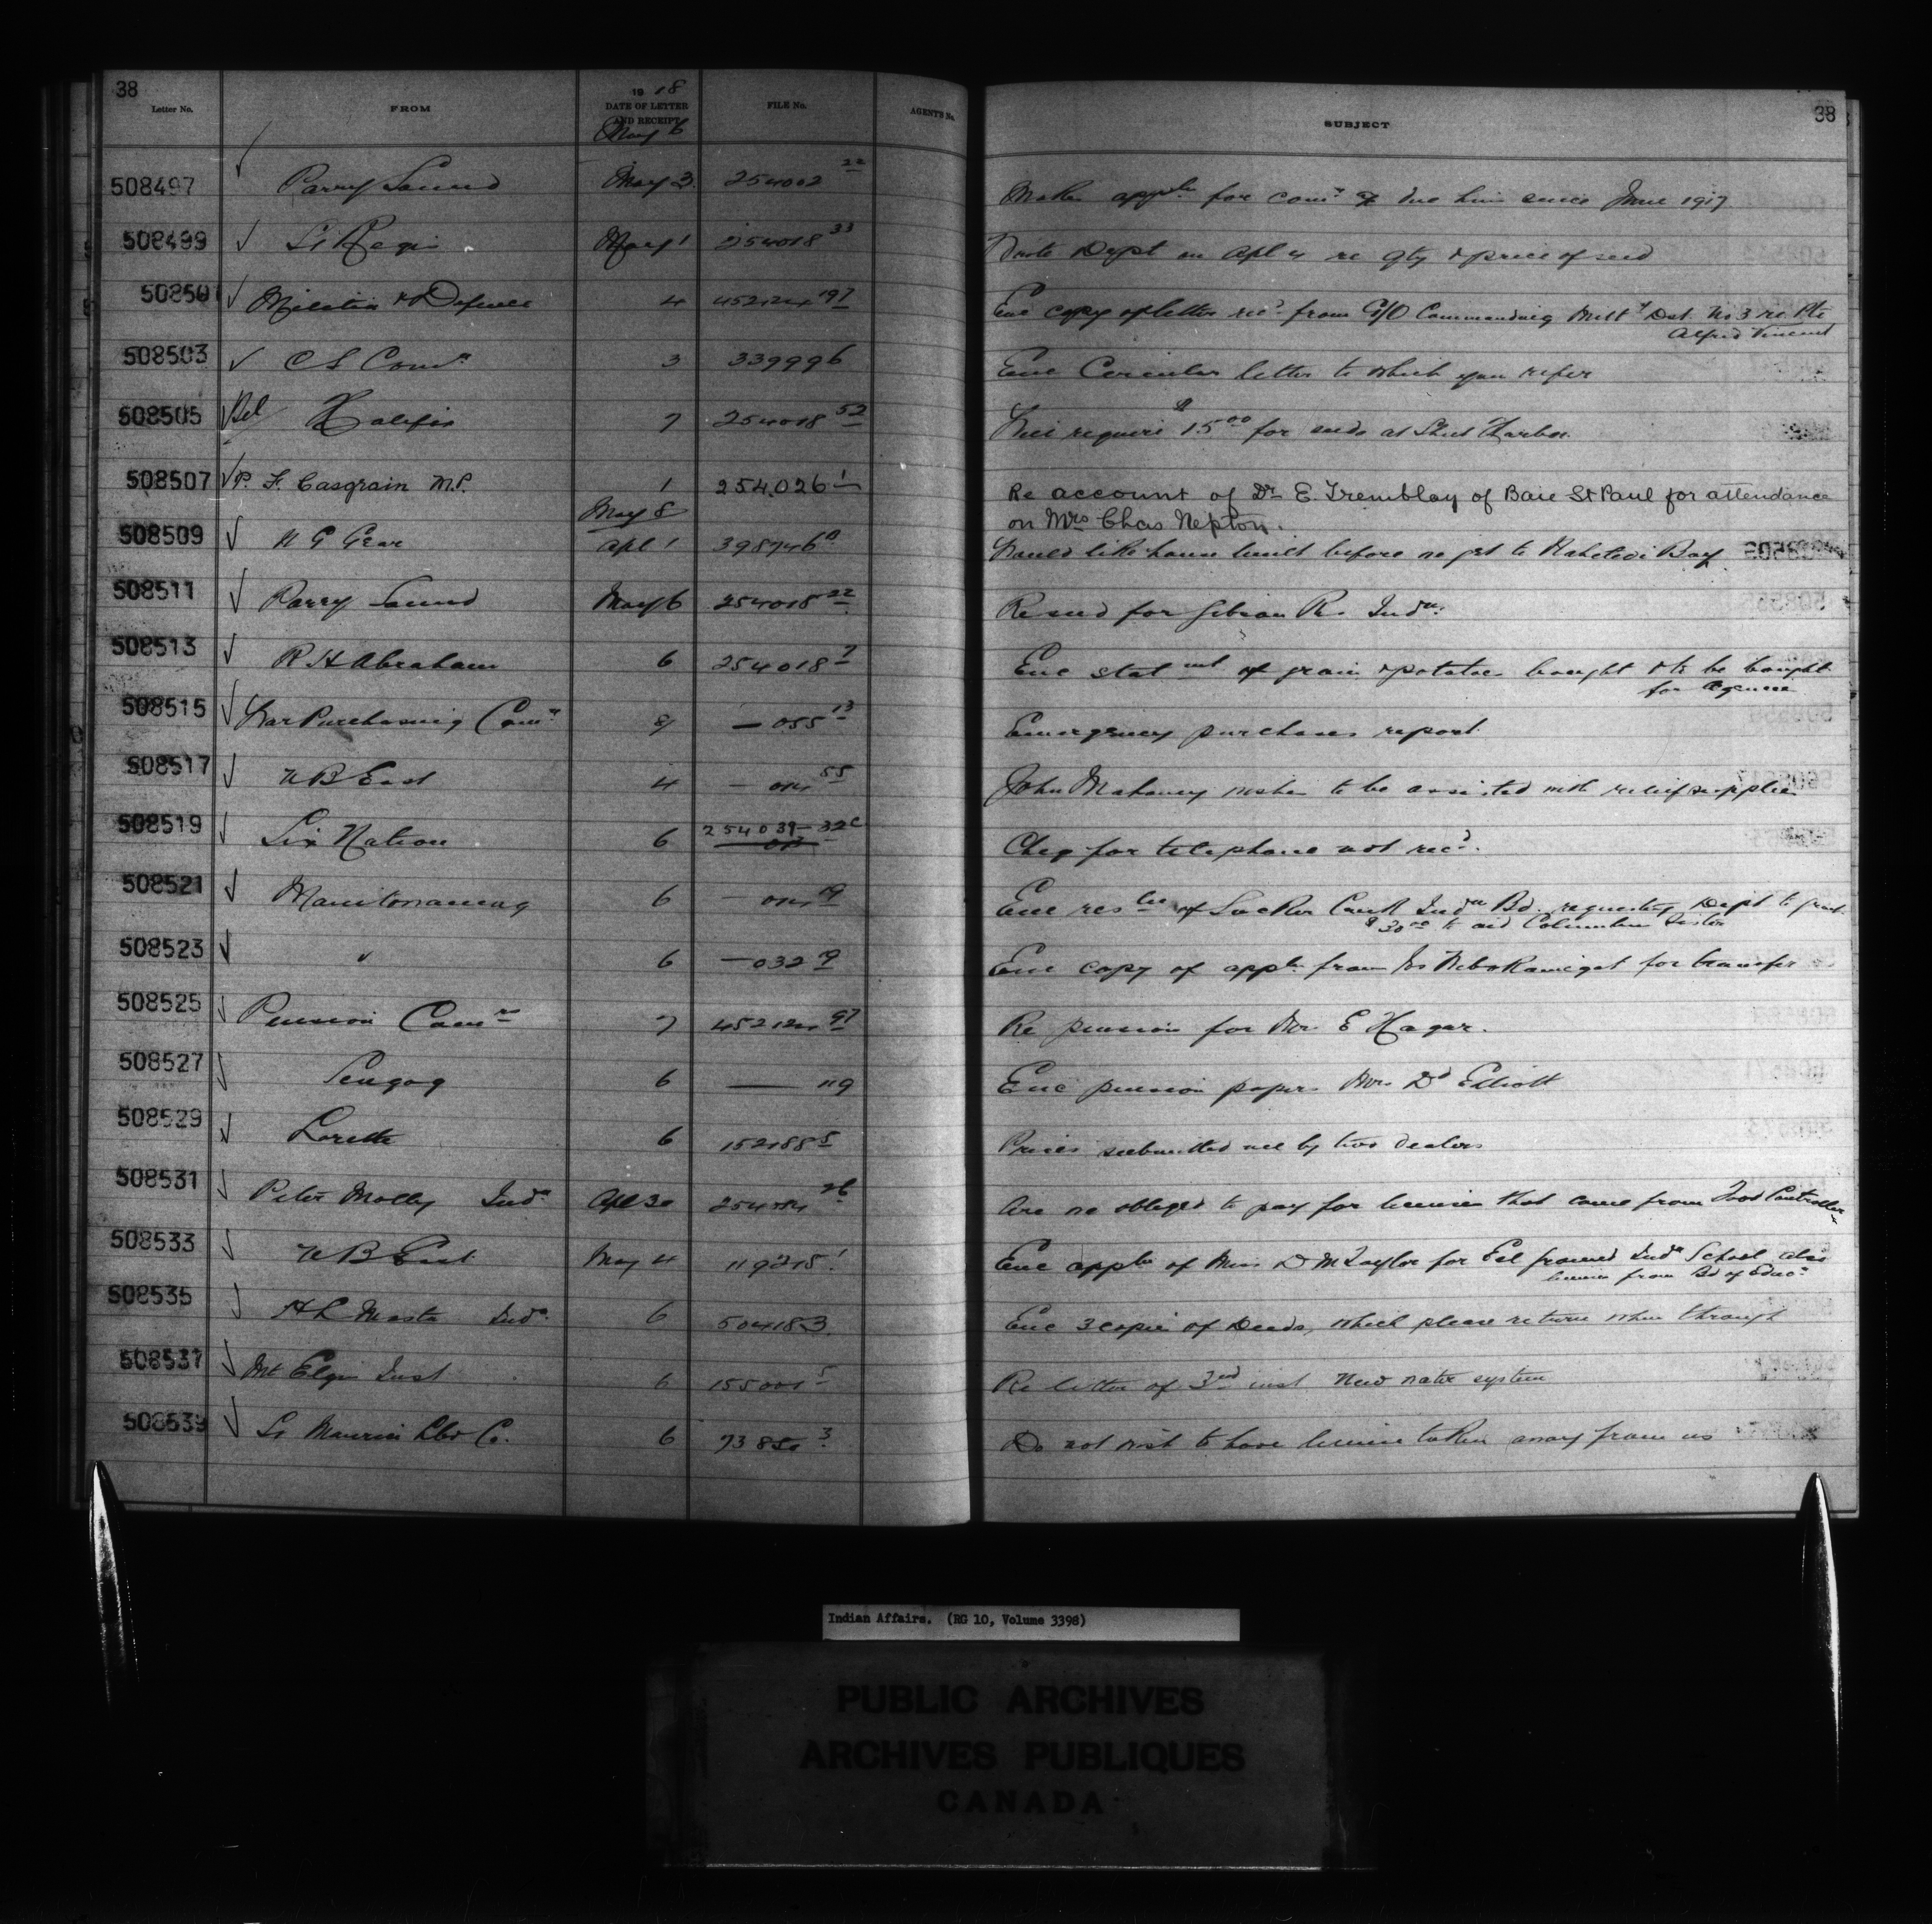 38
Letter No. FROM 1918 DATE OF LETTER AND RECEIPT FILE No. AGENT'S No. SUBJECT 38
May 6
508497 Parry Sound May 3 254002 22 Makes appltn for comn due him since June 1917
508499 St Regis May 1 254018 33 Wrote Dept on Apl 4 re qty & price of seed
508501 Militia & Defence 4 452124 197 Enc copy of letter recd from G/O Commanding Milty Dist No 3 re Pte
Alfred Vincent
508503 C S Comn 3 339996 Enc Circular letter to which you refer
508505 Bel Halifax 7 254018 52 Will require $15 00 for seeds at Sheet Harbor
508507 P. F. Casgrain M.P. 1 254,026 1 Re account of Dr E. Tremblay of Baie St Paul for attendance
on Mrs Chas Nepton.
May 8
508509 Apl 1 398746 Would like house built before we get to Bay
508511 Parry Sound May 6 254018 22 Re seed for Gibson Rs Indn.
508513 R H Abraham 6 254018 7 Enc statmnt of grain & potatoes bought & to be bought
for Agencies
508515 War Purchasing Comn 8 — 055 13 Emergency purchases report
508517 N B East 4 — 55 John Mahoney wishes to be assisted with relief supplies
508519 Six Nation 6 254039-32c Cheq for telephone not recd.
508521 Manitowaning 6 — 19 Enc of Sucker Creek Indn Bd. requesting Dept to grant
$30 00 to aid Columbus Sister
508523 " 6 — 032 9 Enc copy of appln from for transfer
508525 Pension Comrs 7 452124 97 Re pension for Mr. E Hager.
508527 Scugog 6 — 119 Enc pension papers Mrs Dd Elliott
508529 Lorette 6 152188 5 Prices submitted me by two dealers
508531 Peter Molley Indn Apl 30 26 Are we obliged to pay for licenses that come from Food Controller
508533 N B East May 4 119215 1 Enc appln of Miss D McTaylor for Eel ground Indn School also
license from Bd of Educn
508535 H L Masta Indn. 6 504183 Enc 3 copies of Deeds, which please return when through
508537 Mt Elgin Inst 6 155001 5 Re letter of 3rd inst New water system
508539 St Maurice Lbr Co. 6 73850 3 Do not wish to have license taken away from us
Indian Affairs. (RG 10, Volume 3398)
PUBLIC ARCHIVES
ARCHIVES PUBLIQUES
CANADA